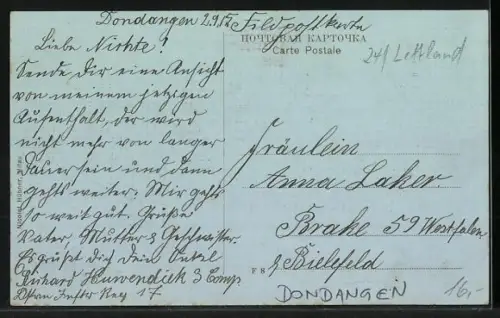 Dondangen 2.9.17 Feldpostkarte
ПОЧТОВАЯ КАРТОЧКА
Carte Postale
24/ Lettland
Liebe Nichte!
Sende Dir eine Ansicht
von meinem jetzigen
Aufenthalt, der wird
nicht mehr von langer
Dauer sein und dann
gehts weiter. Mir gehts
so weit gut. Grüße
Vater, Mutter & Geschwister.
Es grüßt dich dein Onkel
Richard 3 Comp
Reg 17
Fräulein
Anna Laker.
Brake 59 Westfalen
Bielefeld
DONDANGEN
16,-